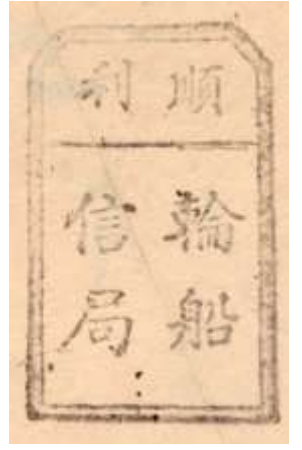 順利
輪船
信局